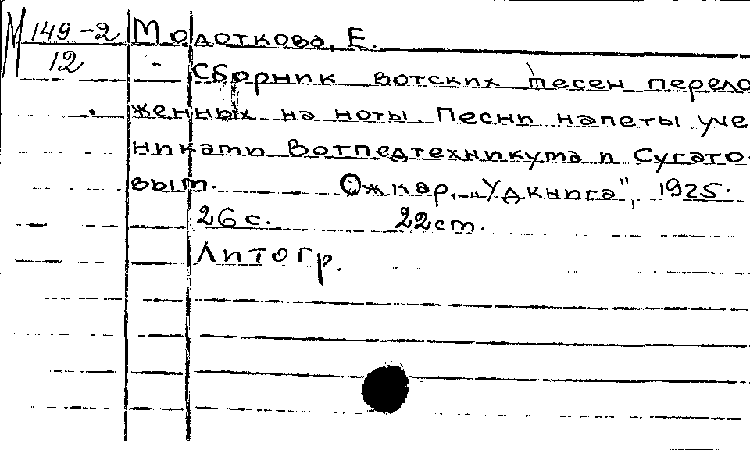 М 149-2 Молоткова, Е.
12 - Сборник вотских песен перело
женных на ноты. Песни напеты уче
никами Вотпедтехникума и Сугато
вым. Ожкар, "Удкнига", 1925.
26 с. 22 ст.
Литогр.